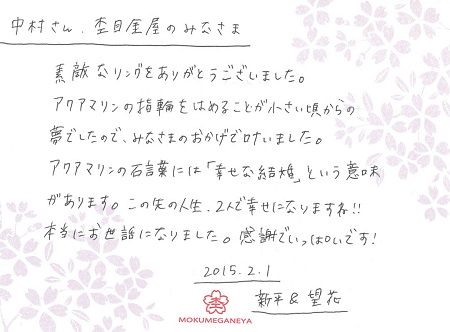 中村さん、杢目金屋のみなさま
素敵なリングをありがとうございました。
アクアマリンの指輪をはめることが小さい頃からの
夢でしたので、みなさまのおかげで叶いました。
アクアマリンの石言葉には「幸せな結婚」という意味
があります。この先の人生、2人で幸せになりますね!!
本当にお世話になりました。感謝でいっぱいです!
2015.2.1
新平&望花
MOKUMEGANEYA